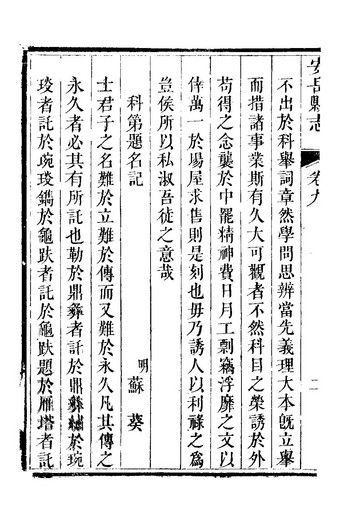 安岳縣志 卷九 二
不出於科舉詞章然學問思辨當先義理大本旣立舉
而措諸事業斯有久大可觀者不然科目之榮誘於外
苟得之念襲於中罷精神費日月工剽竊浮靡之文以
倖萬一於場屋求售則是刻也毋乃誘人以利祿之爲
豈侯所以私淑吾徒之意哉
科第題名記
明蘇葵
士君子之名難於立難於傳而又難於永久凡其傳之
永久者必其有所託也勒於鼎彝者託於鼎彝鏽於琬
琰者託於琬琰鐫於龜趺者託於龜趺題於雁塔者託